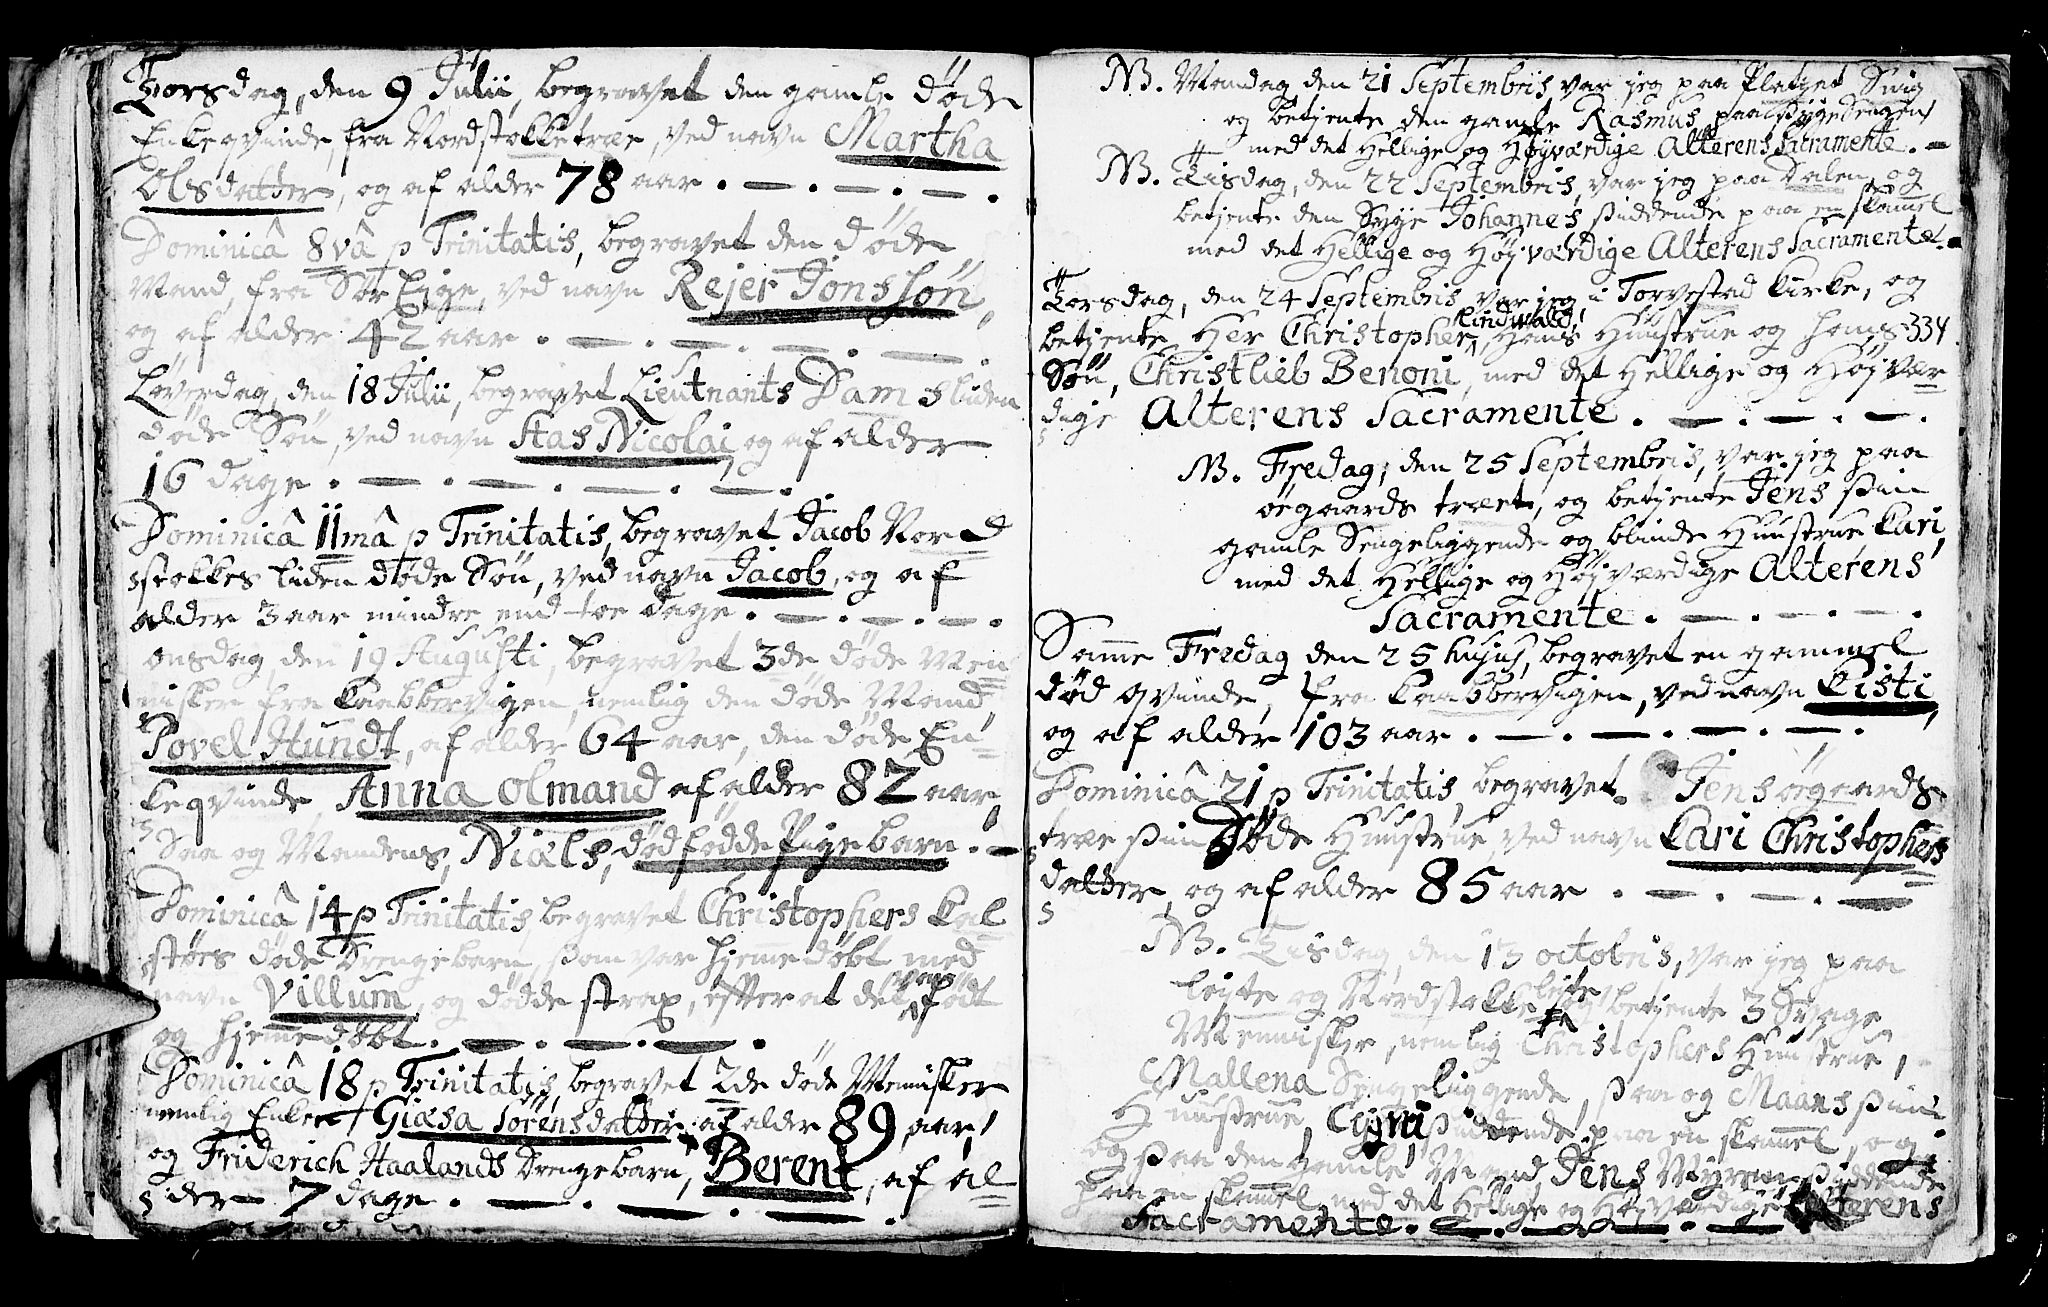 Torsdag, den 9 Julii, begravet den gamle døde
Enkeqvinde, fra Nordstokketræe, ved navn Martha
Olsdatter, og af alder 78 aar . — . — . — .
Dominicâ 8vâ p Trinitatis, begravet den døde
Mand, fra Sør Eyge, ved navn Rejer Jonssøn,
og af alder 42 aar . — . — . — . — .
Løverdag, den 18 Julii, begravet Lieutnants Dams liden
døde Søn, ved navn Has Nicolai, og af alder
16 dage . — . — . — . — .
Dominicâ 11mâ p Trinitatis, begravet Jacob Nord=
stokkes liden døde Søn, ved navn Jacob, og af
alder 3 aar mindre end toe dage . — . — . — .
onsdag, den 19 Augusti, begravet 3de døde Men=
nisker fra Kaabbervigen, nemlig den døde Mand,
Povel Hundt, af alder 64 aar, den døde En=
keqvinde Anna Olmand af alder 82 aar,
Saa og Mandens, Niels, dødfødde Pigebarn . —
Dominicâ 14 p Trinitatis, begravet Christophers Kal=
støes døde Drengebarn, som var hjemmedøbt med
navn Villum, og dødde strax, efter at det var født
og hjemmedøbt . — . — . — .
Dominicâ 18 p Trinitatis, begravet 2de døde Mennisker
nemlig Enken Giæsa Sørensdatter, af alder 89 aar,
og Friderich Haalands Drengebarn, Berent, af al=
der 7 dage . — . — . — .
NB. Mandag den 21 Septembris var jeg paa Platzet
og betjente den gamle Rasmus, paa Sygesengen
med det Hellige og Høyværdige Alterens Sacramente. —
NB. Tisdag, den 22 Septembris, var jeg paa Dalen, og
betjente den Syge Johannes siddende paa en skammel
med det Hellige og Højværdige Alterens Sacramente. —
Torsdag, den 24 Septembris, var jeg i Torvestad Kirke, og
betjente Her Christopher Lindwald, Hans Huustrue og hans 334.
Søn, Christlieb Benoni, med det Hellige og Højvær=
dige Alterens Sacramente . — . — . — .
NB. Fredag, den 25 Septembris, var jeg paa
øegaards træet, og betjente Jens sin
gamle Sengeliggende og blinde Huustrue Kari,
med det Hellige og Højværdige Alterens
Sacramente . — . — . — .
Samme Fredag den 25 hujus, begravet en gammel
død Qvinde, fra Kaabbervigen, ved navn Kisti,
og af alder 103 aar . — . — . — . — .
Dominicâ 21 p Trinitatis, begravet Jens øegaards
træe sin Døde Huustrue, ved navn Kari Christophers=
datter, og af alder 85 aar . — . — . —
NB. Tisdag, den 13 octobris, var jeg paa
leyte og Nordstokke leyte, og betjente 3 Svage
Mennisker, nemlig Christophers Huustrue,
Mallena Sengeliggende, saa og Maans sin
Huustrue, siddende paa en skammel, og
og saa den gamle Mand, Jens Myren siddende
paa en skammel, med det Hellige og Højværdige Alterens
Sacramente . — . — . —